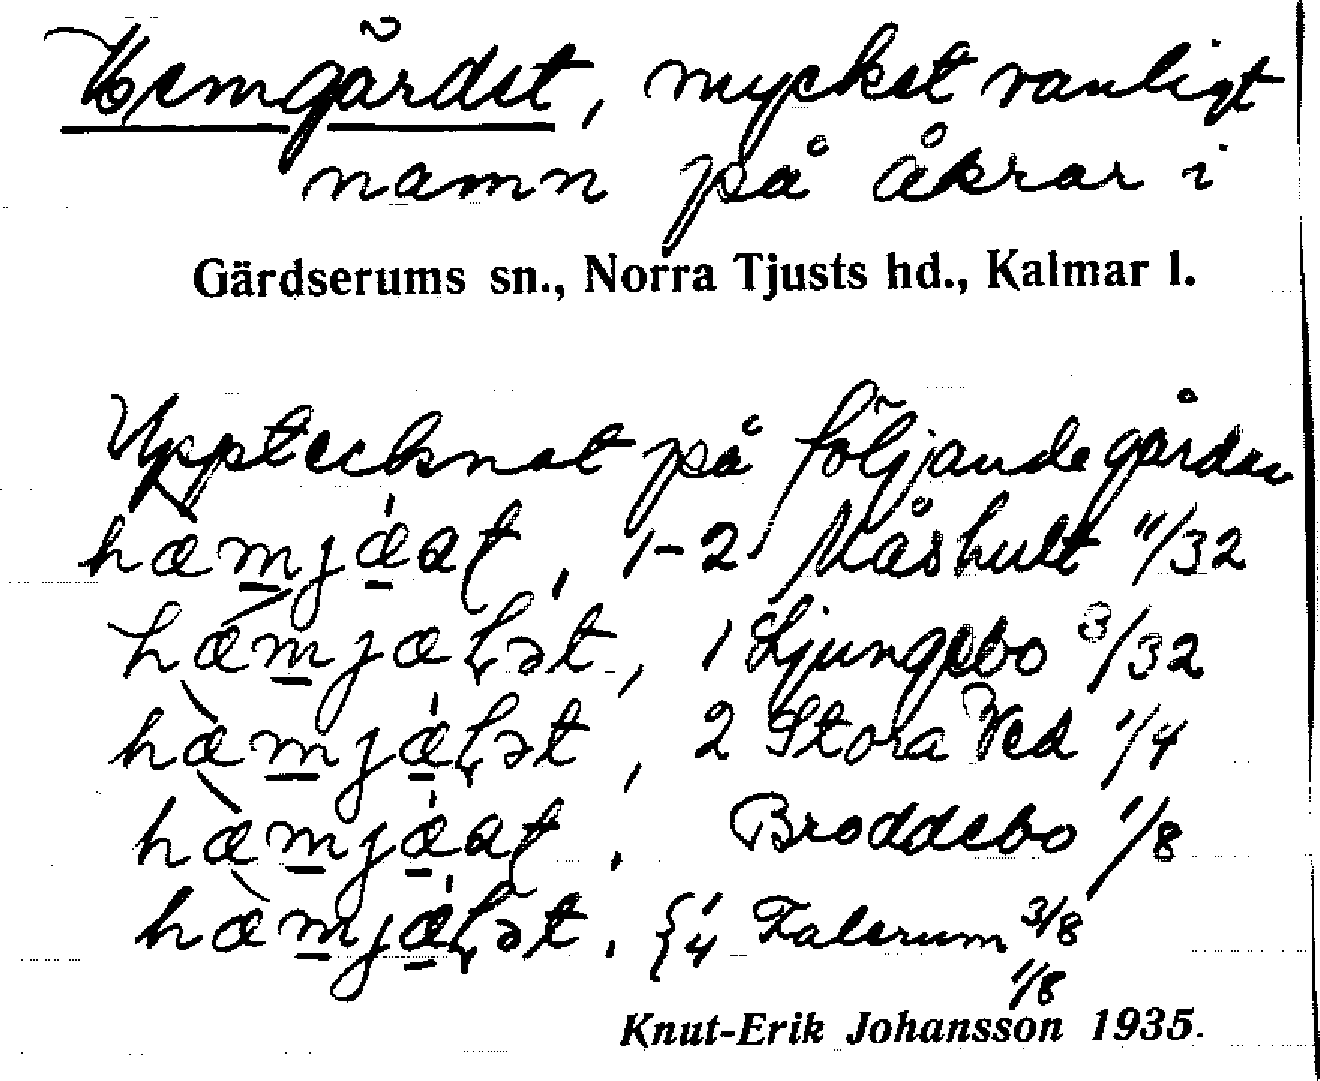 Hemgärdet, mycket vanligt
namn på åkrar i
Gärdserums sn., Norra Tjusts hd., Kalmar l.
Upptecknat på följande gårdar
1-2 Måshult 11/32
1 Ljungebo 3/32
2 Stora Ved 1/4
Broddebo 1/8
{1/4 Falerum 3/8
1/8
Knut-Erik Johansson 1935.